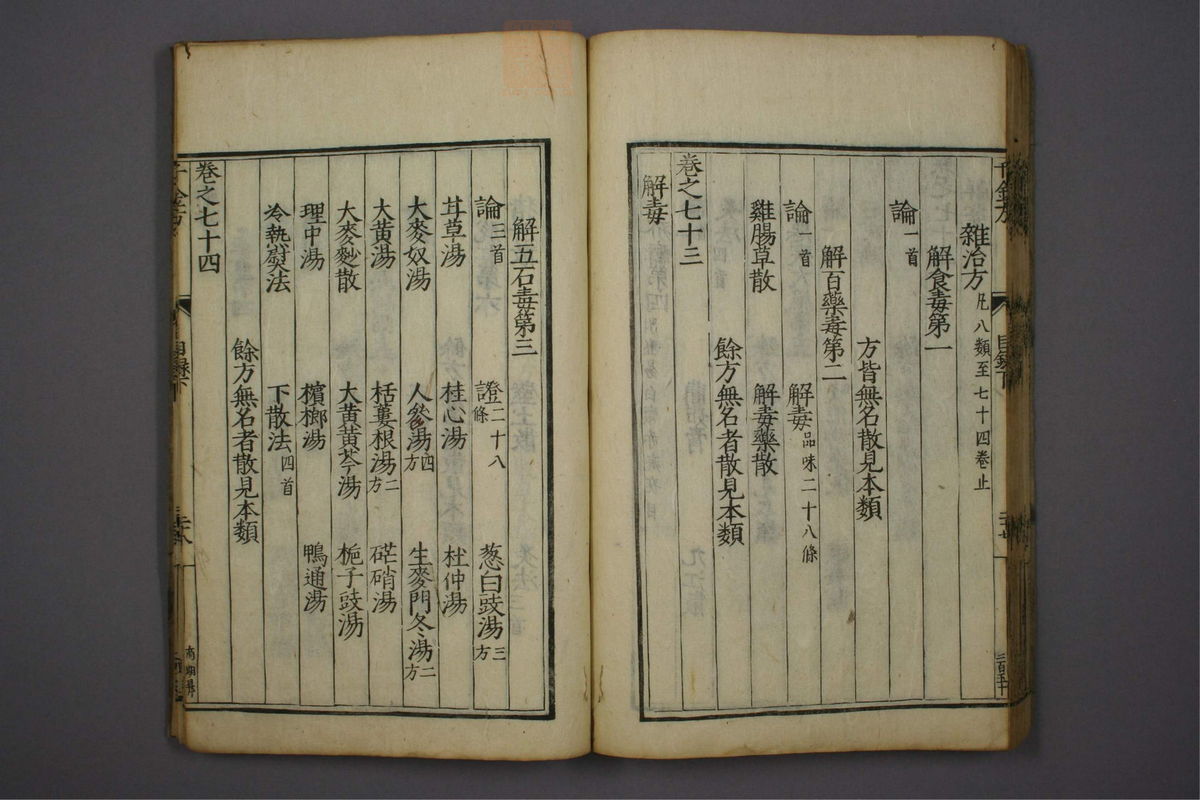 雜治方 凡八類至七十四卷止
解食毒第一
論一首
方皆無名散見本類
解百藥毒第二
論一首 解毒品味二十八條
雞腸草散 解毒藥散
餘方無名者散見本類
卷之七十三
解毒
解五石毒第三
論三首 證二十八條 葱白豉湯三方
甘草湯 桂心湯 杜仲湯
大麥奴湯 人參湯四方 生麥門冬湯二方
大黃湯 栝蔞根湯二方 硭硝湯
大麥麨散 大黃黃芩湯 梔子豉湯
理中湯 檳榔湯 鴨通湯
冷熱熨法 下散法四首
餘方無名者散見本類
卷之七十四